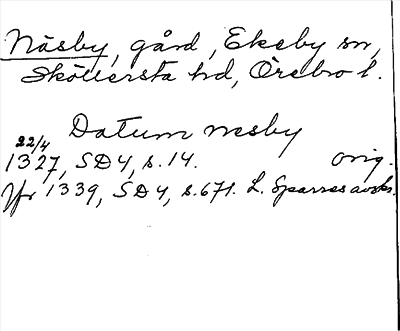 Näsby, gård, Ekeby sn,
Sköllersta hd, Örebro l.
Datum nesby
22/4
1327, SD4, s. 14. orig.
Jfr 1339, SD4, s. 671. L. Sparres avskr.